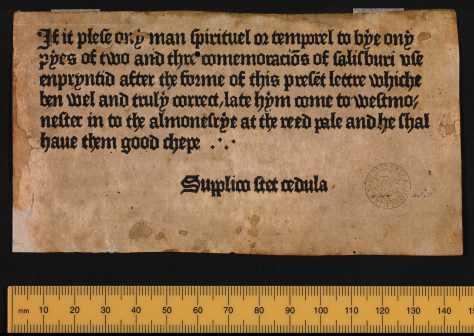 If it plese ony man spirituel or temporel to bye ony
pyes of two and thre comemoraciōs of salisburi vse
enpryntid after the forme of this presēt lettre whiche
ben wel and truly correct, late hym come to westmo-
nester in to the almonesrye at the reed pale and he shal
haue them good chepe
Supplico stet cedula
mm 10 20 30 40 50 60 70 80 90 100 110 120 130 140 150